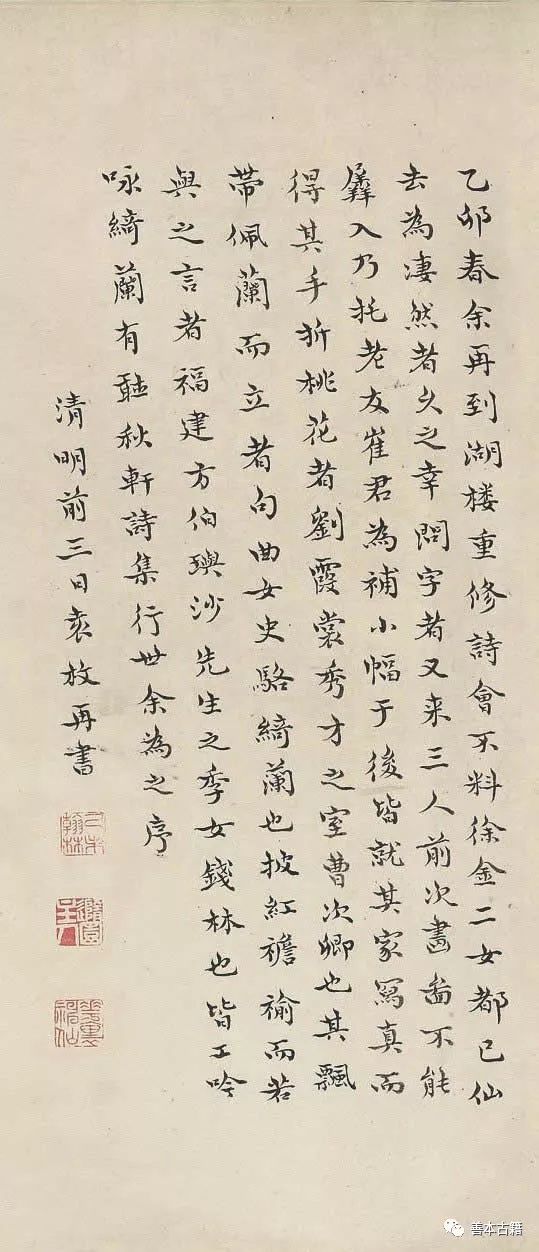 乙卯春余再到湖樓重修詩會不料徐金二女都已仙
去為淒然者久之幸問字者又来三人前次畫啚不能
羼入乃托老友崔君為補小幅于後皆就其家寫真而
得其手折桃花者劉霞裳秀才之室曹次卿也其飄
帶佩蘭而立者句曲女史駱綺蘭也披紅襜褕而若
與之言者福建方伯璵沙先生之季女錢林也皆工吟
咏綺蘭有聽秋軒詩集行世余為之序
清明前三日袁枚再書
己未翰林
花裏神仙
善本古籍